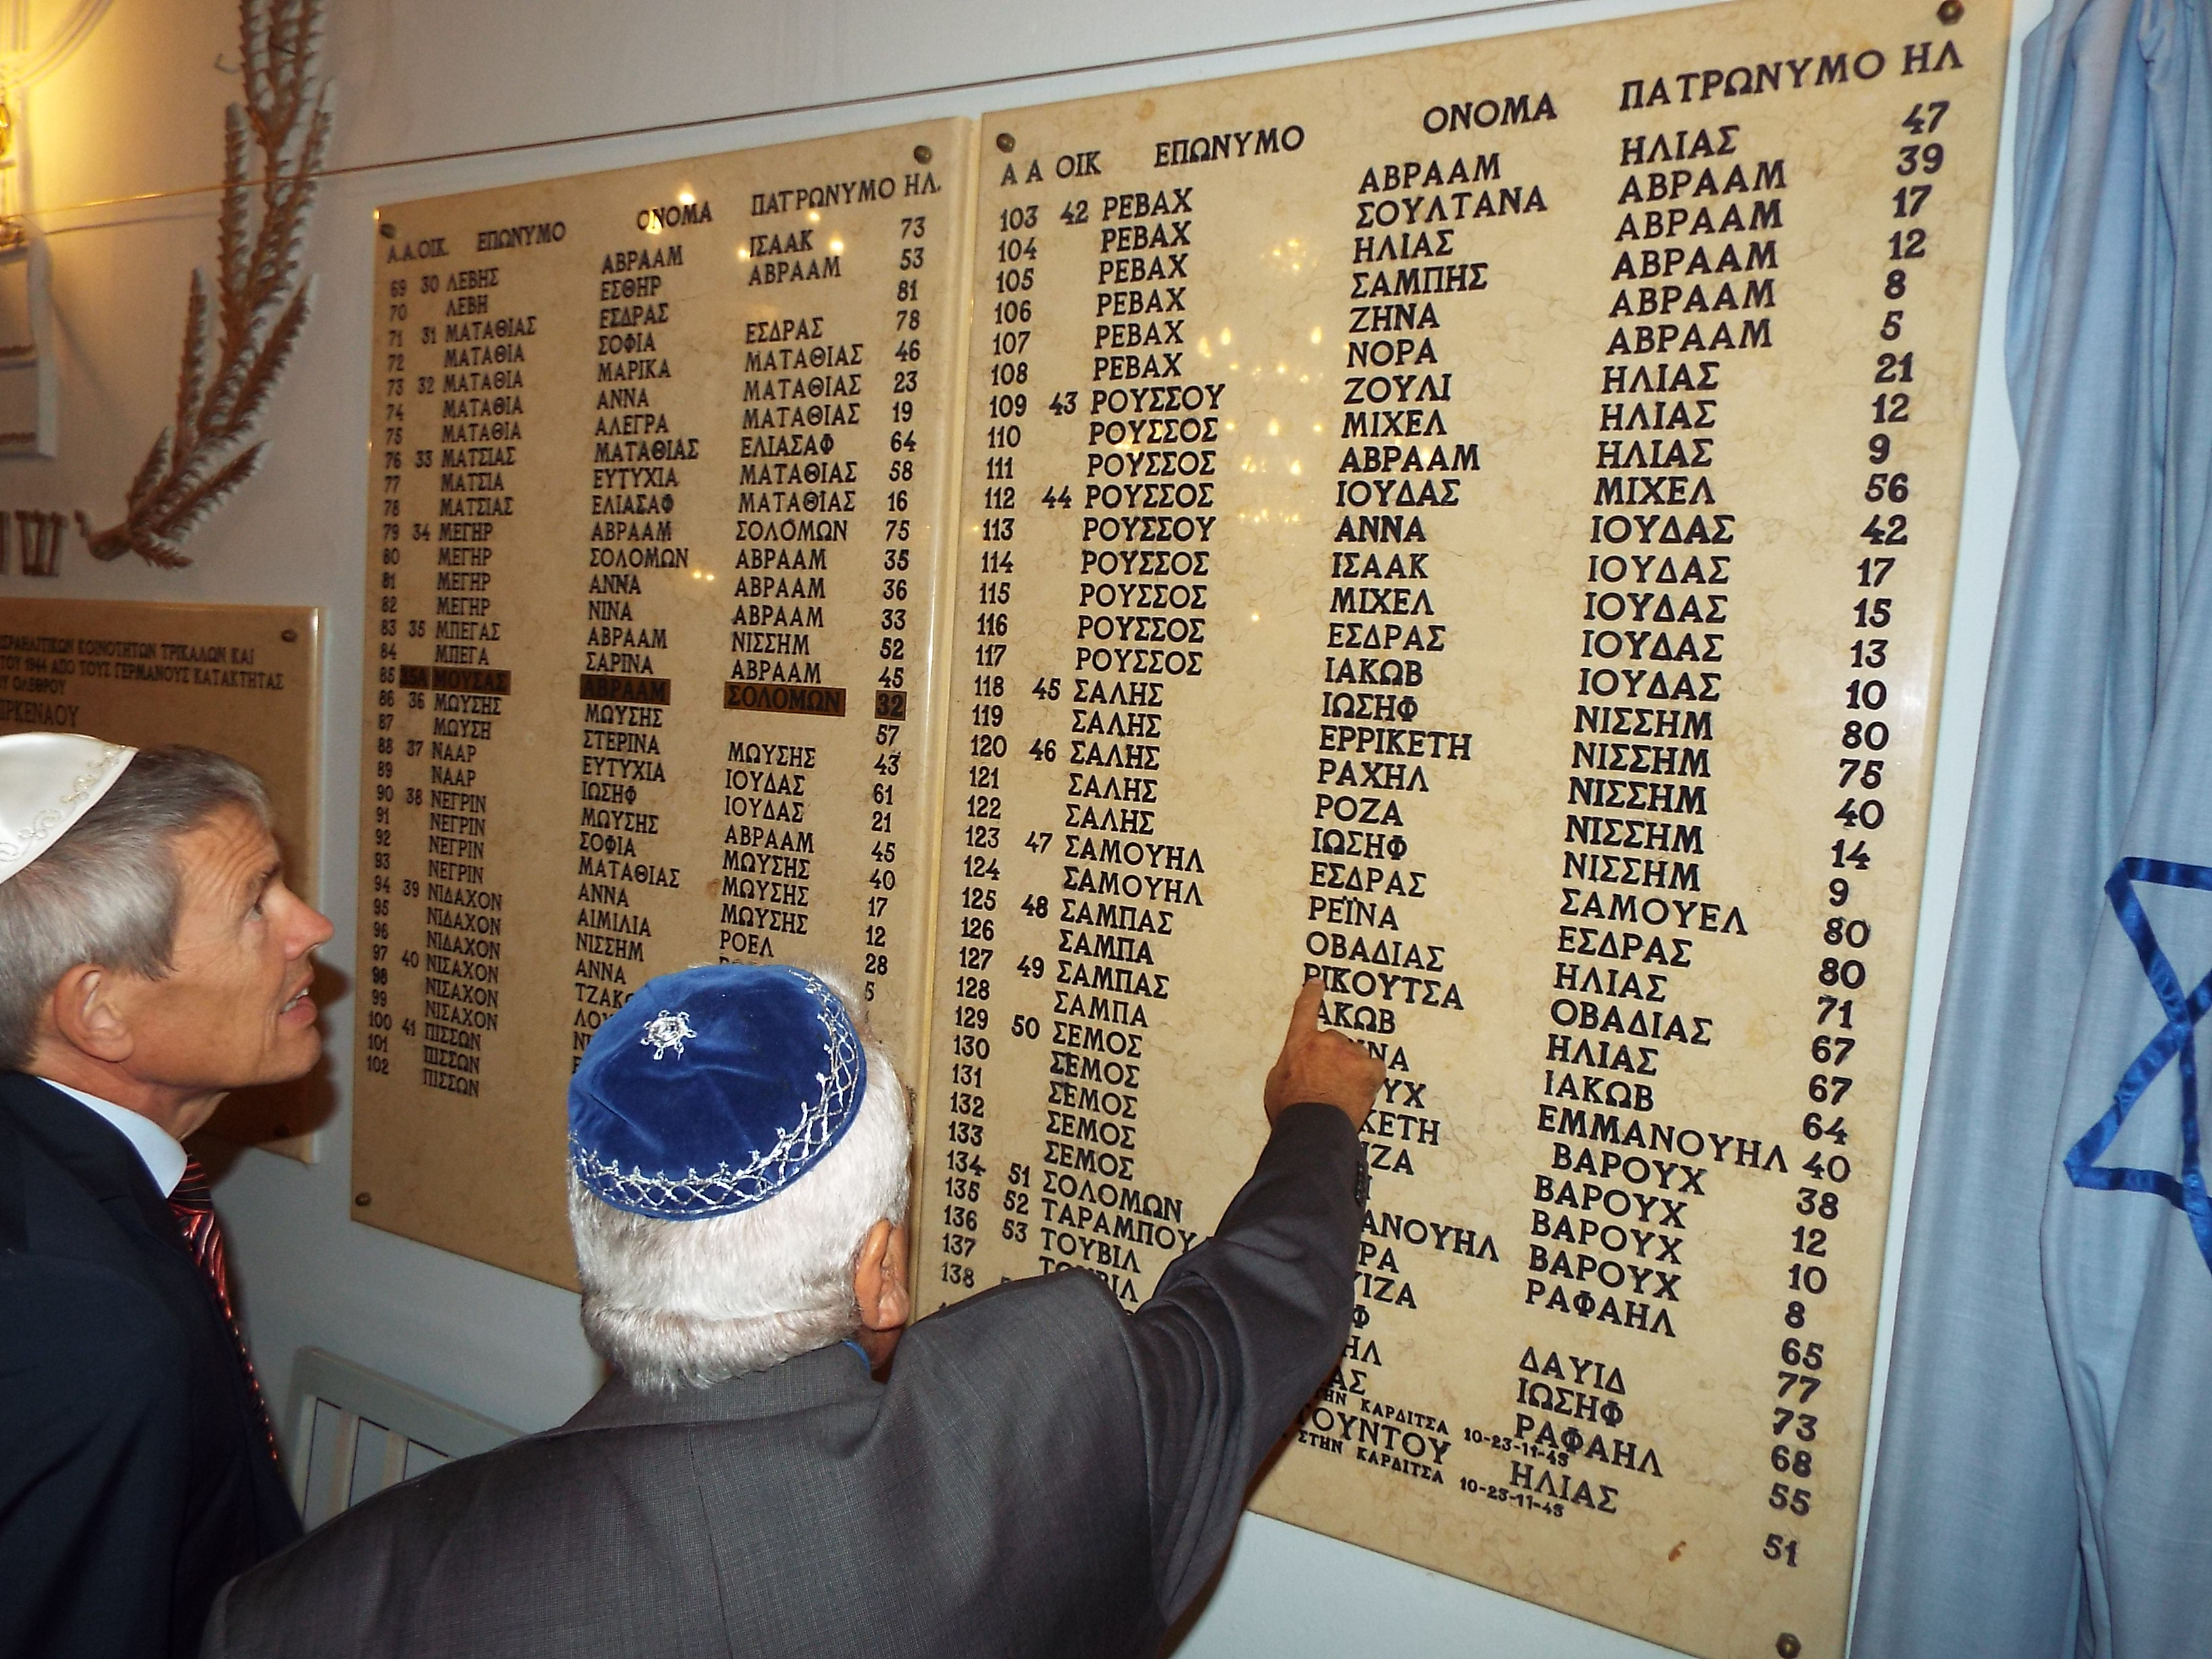 ΙΣΡΑΗΛΙΤΙΚΩΝ ΚΟΙΝΟΤΗΤΩΝ ΤΡΙΚΑΛΩΝ ΚΑΙ
ΤΟΥ 1944 ΑΠΟ ΤΟΥΣ ΓΕΡΜΑΝΟΥΣ ΚΑΤΑΚΤΗΤΑΣ
ΟΛΕΘΡΟΥ
ΙΡΚΕΝΑΟΥ
Α.Α.ΟΙΚ. ΕΠΩΝΥΜΟ ΟΝΟΜΑ ΠΑΤΡΩΝΥΜΟ ΗΛ.
69 30 ΛΕΒΗΣ ΑΒΡΑΑΜ ΙΣΑΑΚ 73
70 ΛΕΒΗ ΕΣΘΗΡ ΑΒΡΑΑΜ 53
71 31 ΜΑΤΑΘΙΑΣ ΕΣΔΡΑΣ 81
72 ΜΑΤΑΘΙΑ ΣΟΦΙΑ ΕΣΔΡΑΣ 78
73 32 ΜΑΤΑΘΙΑ ΜΑΡΙΚΑ ΜΑΤΑΘΙΑΣ 46
74 ΜΑΤΑΘΙΑ ΑΝΝΑ ΜΑΤΑΘΙΑΣ 23
75 ΜΑΤΑΘΙΑ ΑΛΕΓΡΑ ΜΑΤΑΘΙΑΣ 19
76 33 ΜΑΤΣΙΑΣ ΜΑΤΑΘΙΑΣ ΕΛΙΑΣΑΦ 64
77 ΜΑΤΣΙΑ ΕΥΤΥΧΙΑ ΜΑΤΑΘΙΑΣ 58
78 ΜΑΤΣΙΑΣ ΕΛΙΑΣΑΦ ΜΑΤΑΘΙΑΣ 16
79 34 ΜΕΓΗΡ ΑΒΡΑΑΜ ΣΟΛΟΜΩΝ 75
80 ΜΕΓΗΡ ΣΟΛΟΜΩΝ ΑΒΡΑΑΜ 35
81 ΜΕΓΗΡ ΑΝΝΑ ΑΒΡΑΑΜ 36
82 ΜΕΓΗΡ ΝΙΝΑ ΑΒΡΑΑΜ 33
83 35 ΜΠΕΓΑΣ ΑΒΡΑΑΜ ΝΙΣΣΗΜ 52
84 ΜΠΕΓΑ ΣΑΡΙΝΑ ΑΒΡΑΑΜ 45
85 35Α ΜΟΥΣΑΣ ΑΒΡΑΑΜ ΣΟΛΟΜΩΝ 32
86 36 ΜΩΥΣΗΣ ΜΩΥΣΗΣ 57
87 ΜΩΥΣΗ ΣΤΕΡΙΝΑ ΜΩΥΣΗΣ 43
88 37 ΝΑΑΡ ΕΥΤΥΧΙΑ ΙΟΥΔΑΣ 61
89 ΝΑΑΡ ΙΩΣΗΦ ΙΟΥΔΑΣ 21
90 38 ΝΕΓΡΙΝ ΜΩΥΣΗΣ ΑΒΡΑΑΜ 45
91 ΝΕΓΡΙΝ ΣΟΦΙΑ ΜΩΥΣΗΣ 40
92 ΝΕΓΡΙΝ ΜΑΤΑΘΙΑΣ ΜΩΥΣΗΣ 17
93 ΝΕΓΡΙΝ ΑΝΝΑ ΜΩΥΣΗΣ 12
94 39 ΝΙΔΑΧΟΝ ΑΙΜΙΛΙΑ ΡΟΕΛ 28
95 ΝΙΔΑΧΟΝ ΝΙΣΣΗΜ 5
96 ΝΙΔΑΧΟΝ ΑΝΝΑ
97 40 ΝΙΣΑΧΟΝ ΤΖΑΚΟ
98 ΝΙΣΑΧΟΝ
99 ΝΙΣΑΧΟΝ
100 41 ΠΙΣΣΩΝ
101 ΠΙΣΣΩΝ
102 ΠΙΣΣΩΝ
Α Α ΟΙΚ ΕΠΩΝΥΜΟ ΟΝΟΜΑ ΠΑΤΡΩΝΥΜΟ ΗΛ
103 42 ΡΕΒΑΧ ΑΒΡΑΑΜ ΗΛΙΑΣ 47
104 ΡΕΒΑΧ ΣΟΥΛΤΑΝΑ ΑΒΡΑΑΜ 39
105 ΡΕΒΑΧ ΗΛΙΑΣ ΑΒΡΑΑΜ 17
106 ΡΕΒΑΧ ΣΑΜΠΗΣ ΑΒΡΑΑΜ 12
107 ΡΕΒΑΧ ΖΗΝΑ ΑΒΡΑΑΜ 8
108 ΡΕΒΑΧ ΝΟΡΑ ΑΒΡΑΑΜ 5
109 43 ΡΟΥΣΣΟΥ ΖΟΥΛΙ ΗΛΙΑΣ 21
110 ΡΟΥΣΣΟΣ ΜΙΧΕΛ ΗΛΙΑΣ 12
111 ΡΟΥΣΣΟΣ ΑΒΡΑΑΜ ΗΛΙΑΣ 9
112 44 ΡΟΥΣΣΟΣ ΙΟΥΔΑΣ ΜΙΧΕΛ 56
113 ΡΟΥΣΣΟΥ ΑΝΝΑ ΙΟΥΔΑΣ 42
114 ΡΟΥΣΣΟΣ ΙΣΑΑΚ ΙΟΥΔΑΣ 17
115 ΡΟΥΣΣΟΣ ΜΙΧΕΛ ΙΟΥΔΑΣ 15
116 ΡΟΥΣΣΟΣ ΕΣΔΡΑΣ ΙΟΥΔΑΣ 13
117 ΡΟΥΣΣΟΣ ΙΑΚΩΒ ΙΟΥΔΑΣ 10
118 45 ΣΑΛΗΣ ΙΩΣΗΦ ΝΙΣΣΗΜ 80
119 ΣΑΛΗΣ ΕΡΡΙΚΕΤΗ ΝΙΣΣΗΜ 75
120 46 ΣΑΛΗΣ ΡΑΧΗΛ ΝΙΣΣΗΜ 40
121 ΣΑΛΗΣ ΡΟΖΑ ΝΙΣΣΗΜ 14
122 ΣΑΛΗΣ ΙΩΣΗΦ ΝΙΣΣΗΜ 9
123 47 ΣΑΜΟΥΗΛ ΕΣΔΡΑΣ ΣΑΜΟΥΕΛ 80
124 ΣΑΜΟΥΗΛ ΡΕΪΝΑ ΕΣΔΡΑΣ 80
125 48 ΣΑΜΠΑΣ ΟΒΑΔΙΑΣ ΗΛΙΑΣ 71
126 ΣΑΜΠΑ ΡΙΚΟΥΤΣΑ ΟΒΑΔΙΑΣ 67
127 49 ΣΑΜΠΑΣ ΑΚΩΒ ΗΛΙΑΣ 67
128 ΣΑΜΠΑ ΝΑ ΙΑΚΩΒ 64
129 50 ΣΕΜΟΣ ΥΧ ΕΜΜΑΝΟΥΗΛ 40
130 ΣΕΜΟΣ ΚΕΤΗ ΒΑΡΟΥΧ 38
131 ΣΕΜΟΣ ΙΖΑ ΒΑΡΟΥΧ 12
132 ΣΕΜΟΣ ΒΑΡΟΥΧ 10
133 ΣΕΜΟΣ ΑΝΟΥΗΛ ΒΑΡΟΥΧ 8
134 51 ΣΟΛΟΜΩΝ ΡΑ ΡΑΦΑΗΛ 65
135 52 ΤΑΡΑΜΠΟΥ ΥΙΖΑ 77
136 53 ΤΟΥΒΙΛ Φ ΔΑΥΙΔ 73
137 ΤΟΥΒΙΛ ΗΛ ΙΩΣΗΦ 68
138 ΑΣ ΡΑΦΑΗΛ 55
ΣΤΗΝ ΚΑΡΔΙΤΣΑ 10-23-11-43
ΤΟΥΝΤΟΥ ΗΛΙΑΣ 51
ΣΤΗΝ ΚΑΡΔΙΤΣΑ 10-23-11-43